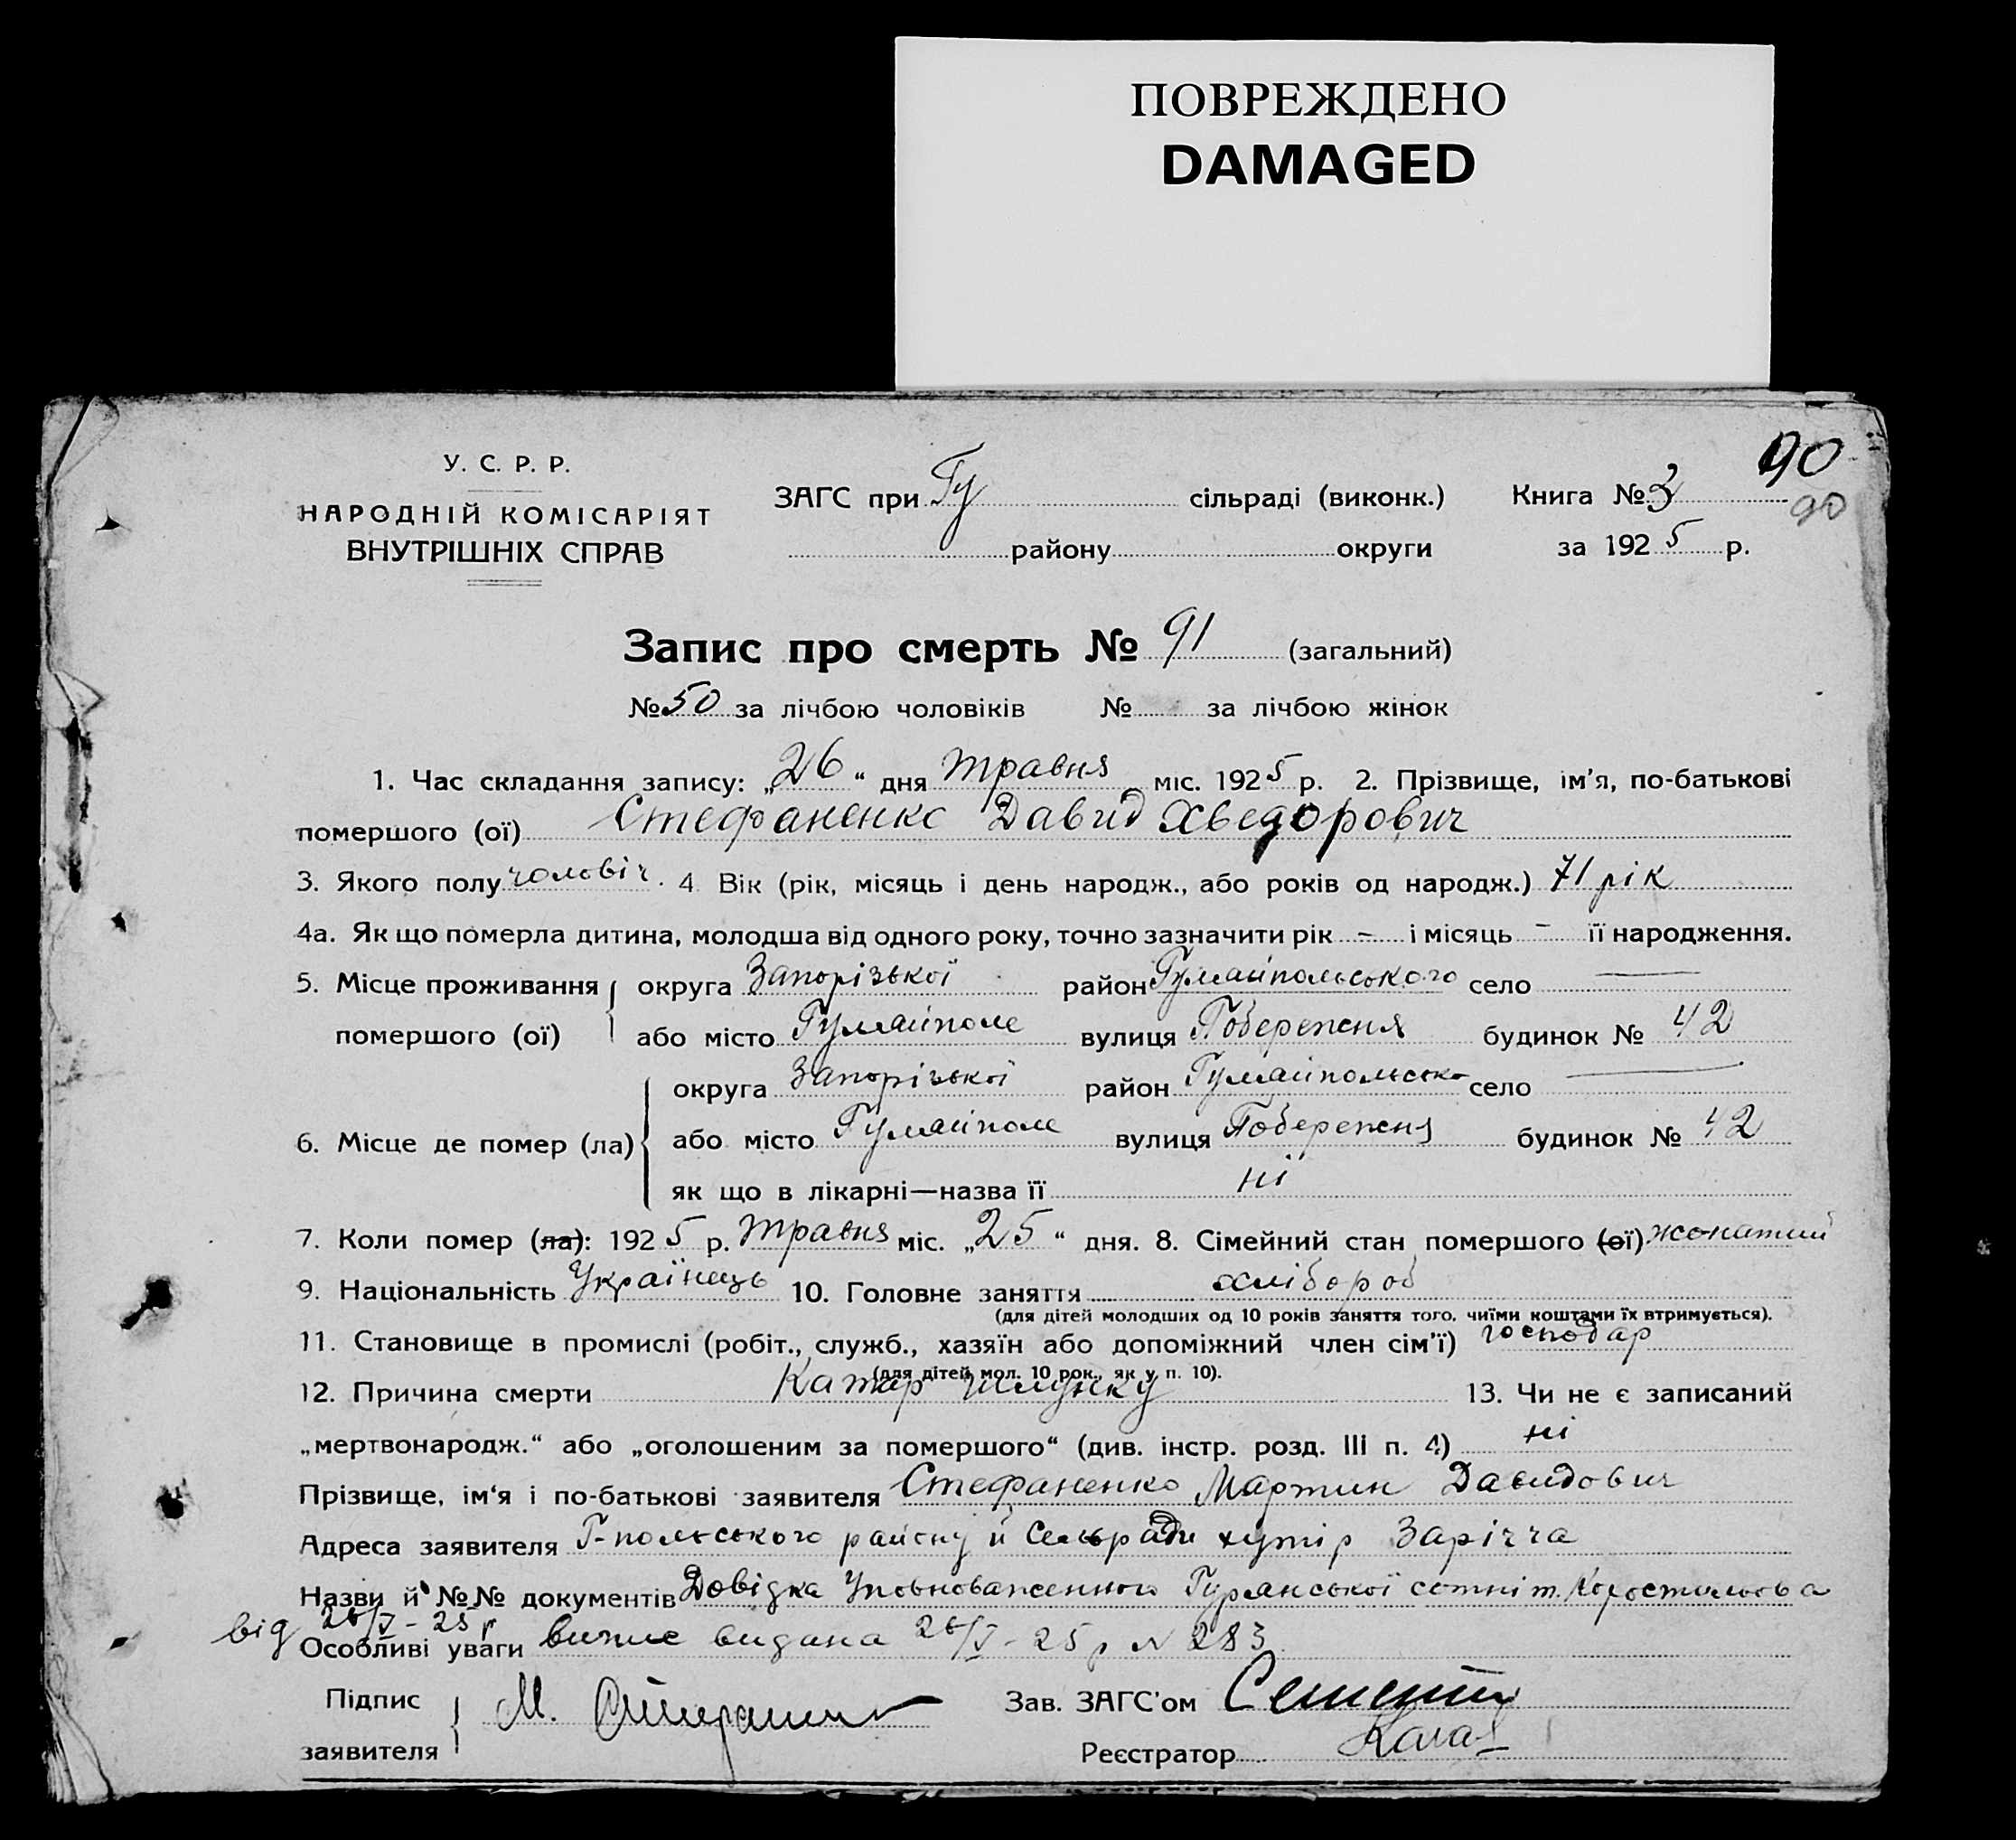 ПОВРЕЖДЕНО
DAMAGED
90
90
У. С. Р. Р.
НАРОДНІЙ КОМІСАРІЯТ
ВНУТРІШНІХ СПРАВ
ЗАГС при Гу сільраді (виконк.)
району округи
Книга № 3
за 1925 р.
Запис про смерть № 91 (загальний)
№ 50 за лічбою чоловіків № за лічбою жінок
1. Час складання запису: „26“ дня травня міс. 1925 р. 2. Прізвище, ім'я, по-батькові
помершого (ої) Стефаненко Давид Хведорович
3. Якого полу чоловіч. 4 Вік (рік, місяць і день народж., або років од народж.) 71 рік
4а. Як що померла дитина, молодша від одного року, точно зазначити рік – і місяць – її народження.
5. Місце проживання округа Запорізької район Гуляйпольського село —
помершого (ої) або місто Гуляйполе вулиця Побережня будинок № 42
округа Запорізької район Гуляйпольсько село —
6. Місце де помер (ла) або місто Гуляйполе вулиця Побережня будинок № 42
як що в лікарні—назва її ні
7. Коли помер (ла): 1925 р. травня міс. „25“ дня. 8. Сімейний стан помершого (ої) жонатий
9. Національність Українець 10. Головне заняття хлібороб
(для дітей молодших од 10 років заняття того, чиїми коштами їх втримується).
11. Становище в промислі (робіт., служб., хазяїн або допоміжний член сім'ї) господар
(для дітей мол. 10 рок., як у п. 10).
12. Причина смерти Катар шлунку 13. Чи не є записаний
„мертвонародж.“ або „оголошеним за помершого“ (див. інстр. розд. III п. 4) ні
Прізвище, ім'я і по-батькові заявителя Стефаненко Мартин Давидович
Адреса заявителя Г-польського району й Сельради хутір Зарічча
Назви й №№ документів Довідка Уповноваженного сотні т. Коростильова
від 26/V - 25 р
Особливі уваги видана 26/V - 25 р N 283
Підпис
заявителя М.
Зав. ЗАГС'ом
Реєстратор